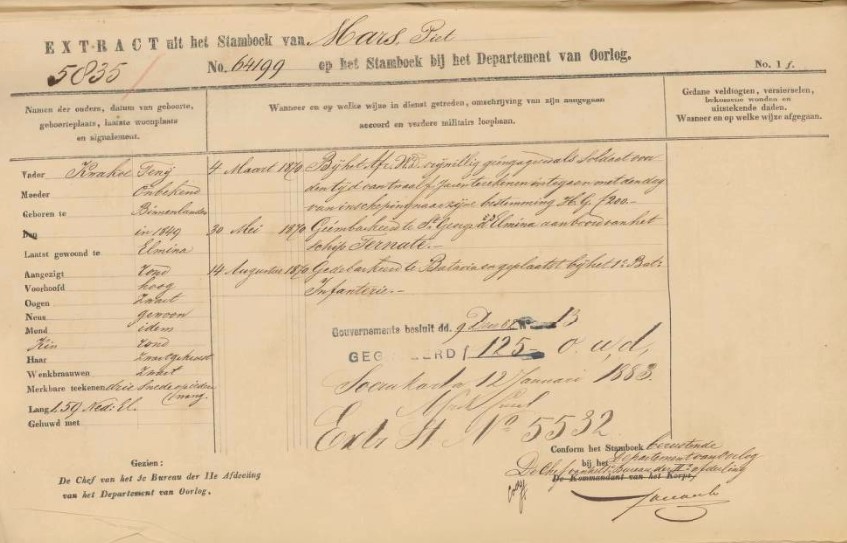 EXTRACT uit het Stamboek van Mars, Piet
5835
No. 64199 op het Stamboek bij het Departement van Oorlog.
No. 1
Namen der ouders, datum van geboorte,
geboorteplaats, laatste woonplaats
en signalement.
Wanneer en op welke wijze in dienst getreden, omschrijving van zijn aangegaan
accoord en verdere militaire loopbaan.
Gedane veldtogten, versierselen,
bekomene wonden en
uitstekende daden.
Wanneer en op welke wijze afgegaan.
Vader Knakoe Tenÿ
Moeder Onbekend
Geboren te Binnenlanden
Den in 1849
Laatst gewoond te Elmina
Aangezigt rond
Voorhoofd hoog
Oogen Zwart
Neus gewoon
Mond idem
Kin rond
Haar Zwartgekroest
Wenkbraauwen Zwart
Merkbare teekenen drie sneden op iedere
wang.
Lang 1.59 Ned: El.
Gehuwd met
4 Maart 1870 Bij het vrijwillig geëngageerd als Soldaat voor
den tijd van twaalf Jaren te rekenen in te gaan met den dag
van inscheping naar zijne bestemming H. G. ƒ 200.-
30 Mei 1870 Geëmbarkeerd te St. George d'Elmina aan boord van het
schip Ternate.-
14 Augustus 1870 Gedebarkeerd te Batavia en geplaatst bij het 1e Bat:
Infanterie.-
Gouvernements besluit dd. 9 13
GEG ERD ƒ 125- o. w. d.
Soerakarta 12 Januari 1883.
Extr St No 5532
Gezien:
De Chef van het 3e Bureau der IIe Afdeeling
van het Departement van Oorlog.
Conform het Stamboek berustende
bij het Departement van Oorlog
De Chef van het Bureau der IIe afdeeling
De Kommandant van het Korps,